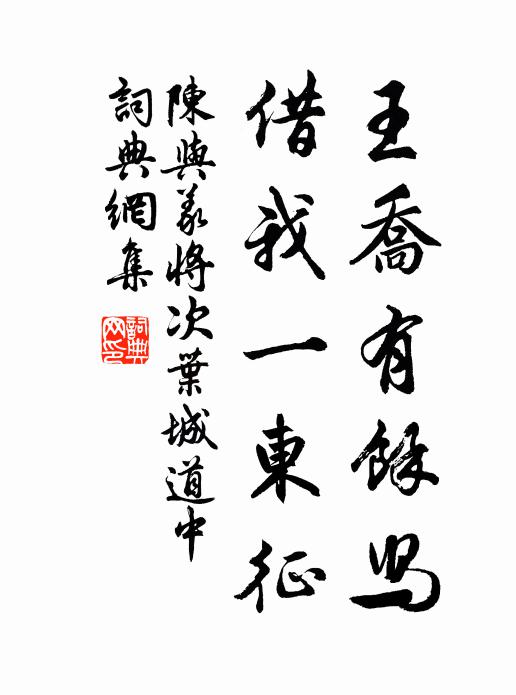 王喬有餘舄
借我一東征
陳與義將次葉城道中
詞典網集
詞典網印